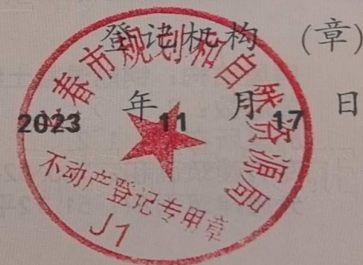 登记机构 (章)
长春市规划和自然资源局
2023 年 11 月 17 日
不动产登记专用章
J1